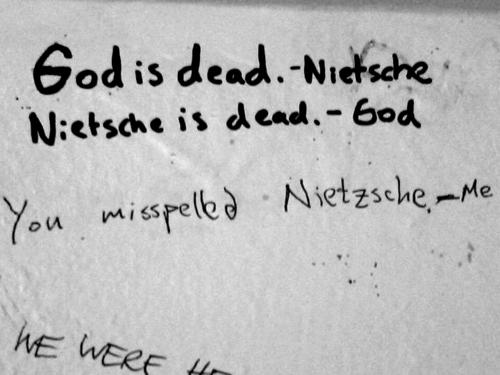 God is dead.-Nietsche
Nietsche is dead.- God
You misspelled Nietzsche.-Me
WE WERE HE